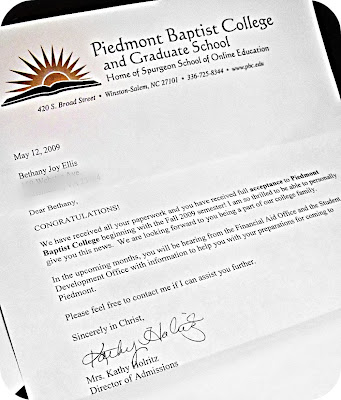 Piedmont Baptist College
and Graduate School
Home of Spurgeon School of Online Education
420 S. Broad Street • Winston-Salem, NC 27101 • 336-725-8344 • www.pbc.edu
May 12, 2009
Bethany Joy Ellis
Dear Bethany,
CONGRATULATIONS!
We have received all your paperwork and you have received full acceptance to Piedmont
Baptist College beginning with the Fall 2009 semester! I am so thrilled to be able to personally
give you this news. We are looking forward to you being a part of our college family.
In the upcoming months, you will be hearing from the Financial Aid Office and the Student
Development Office with information to help you with your preparations for coming to
Piedmont.
Please feel free to contact me if I can assist you further.
Sincerely in Christ,
Kathy Holritz
Mrs. Kathy Holritz
Director of Admissions